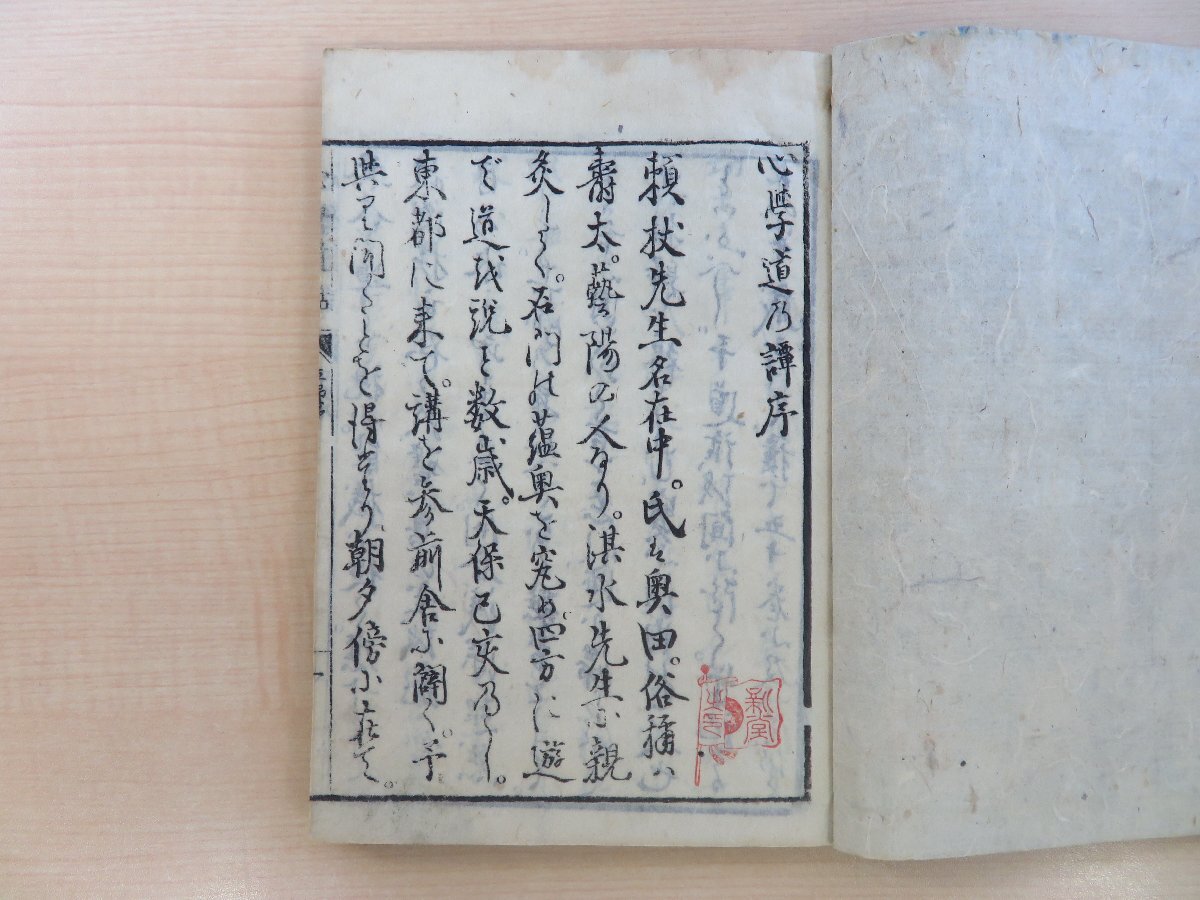 心學道乃譚序
頼杖先生名在中。氏は奥田。俗稱ハ
壽太。藝陽の人なり。湛水先生に親
炙しく。石門の蘊奥を究め。四方に遊
で道を説こと数歳。天保己亥のとし。
東都に来て。講を参前舎に開く。予
與り聞ことを得てより朝夕傍に在て。